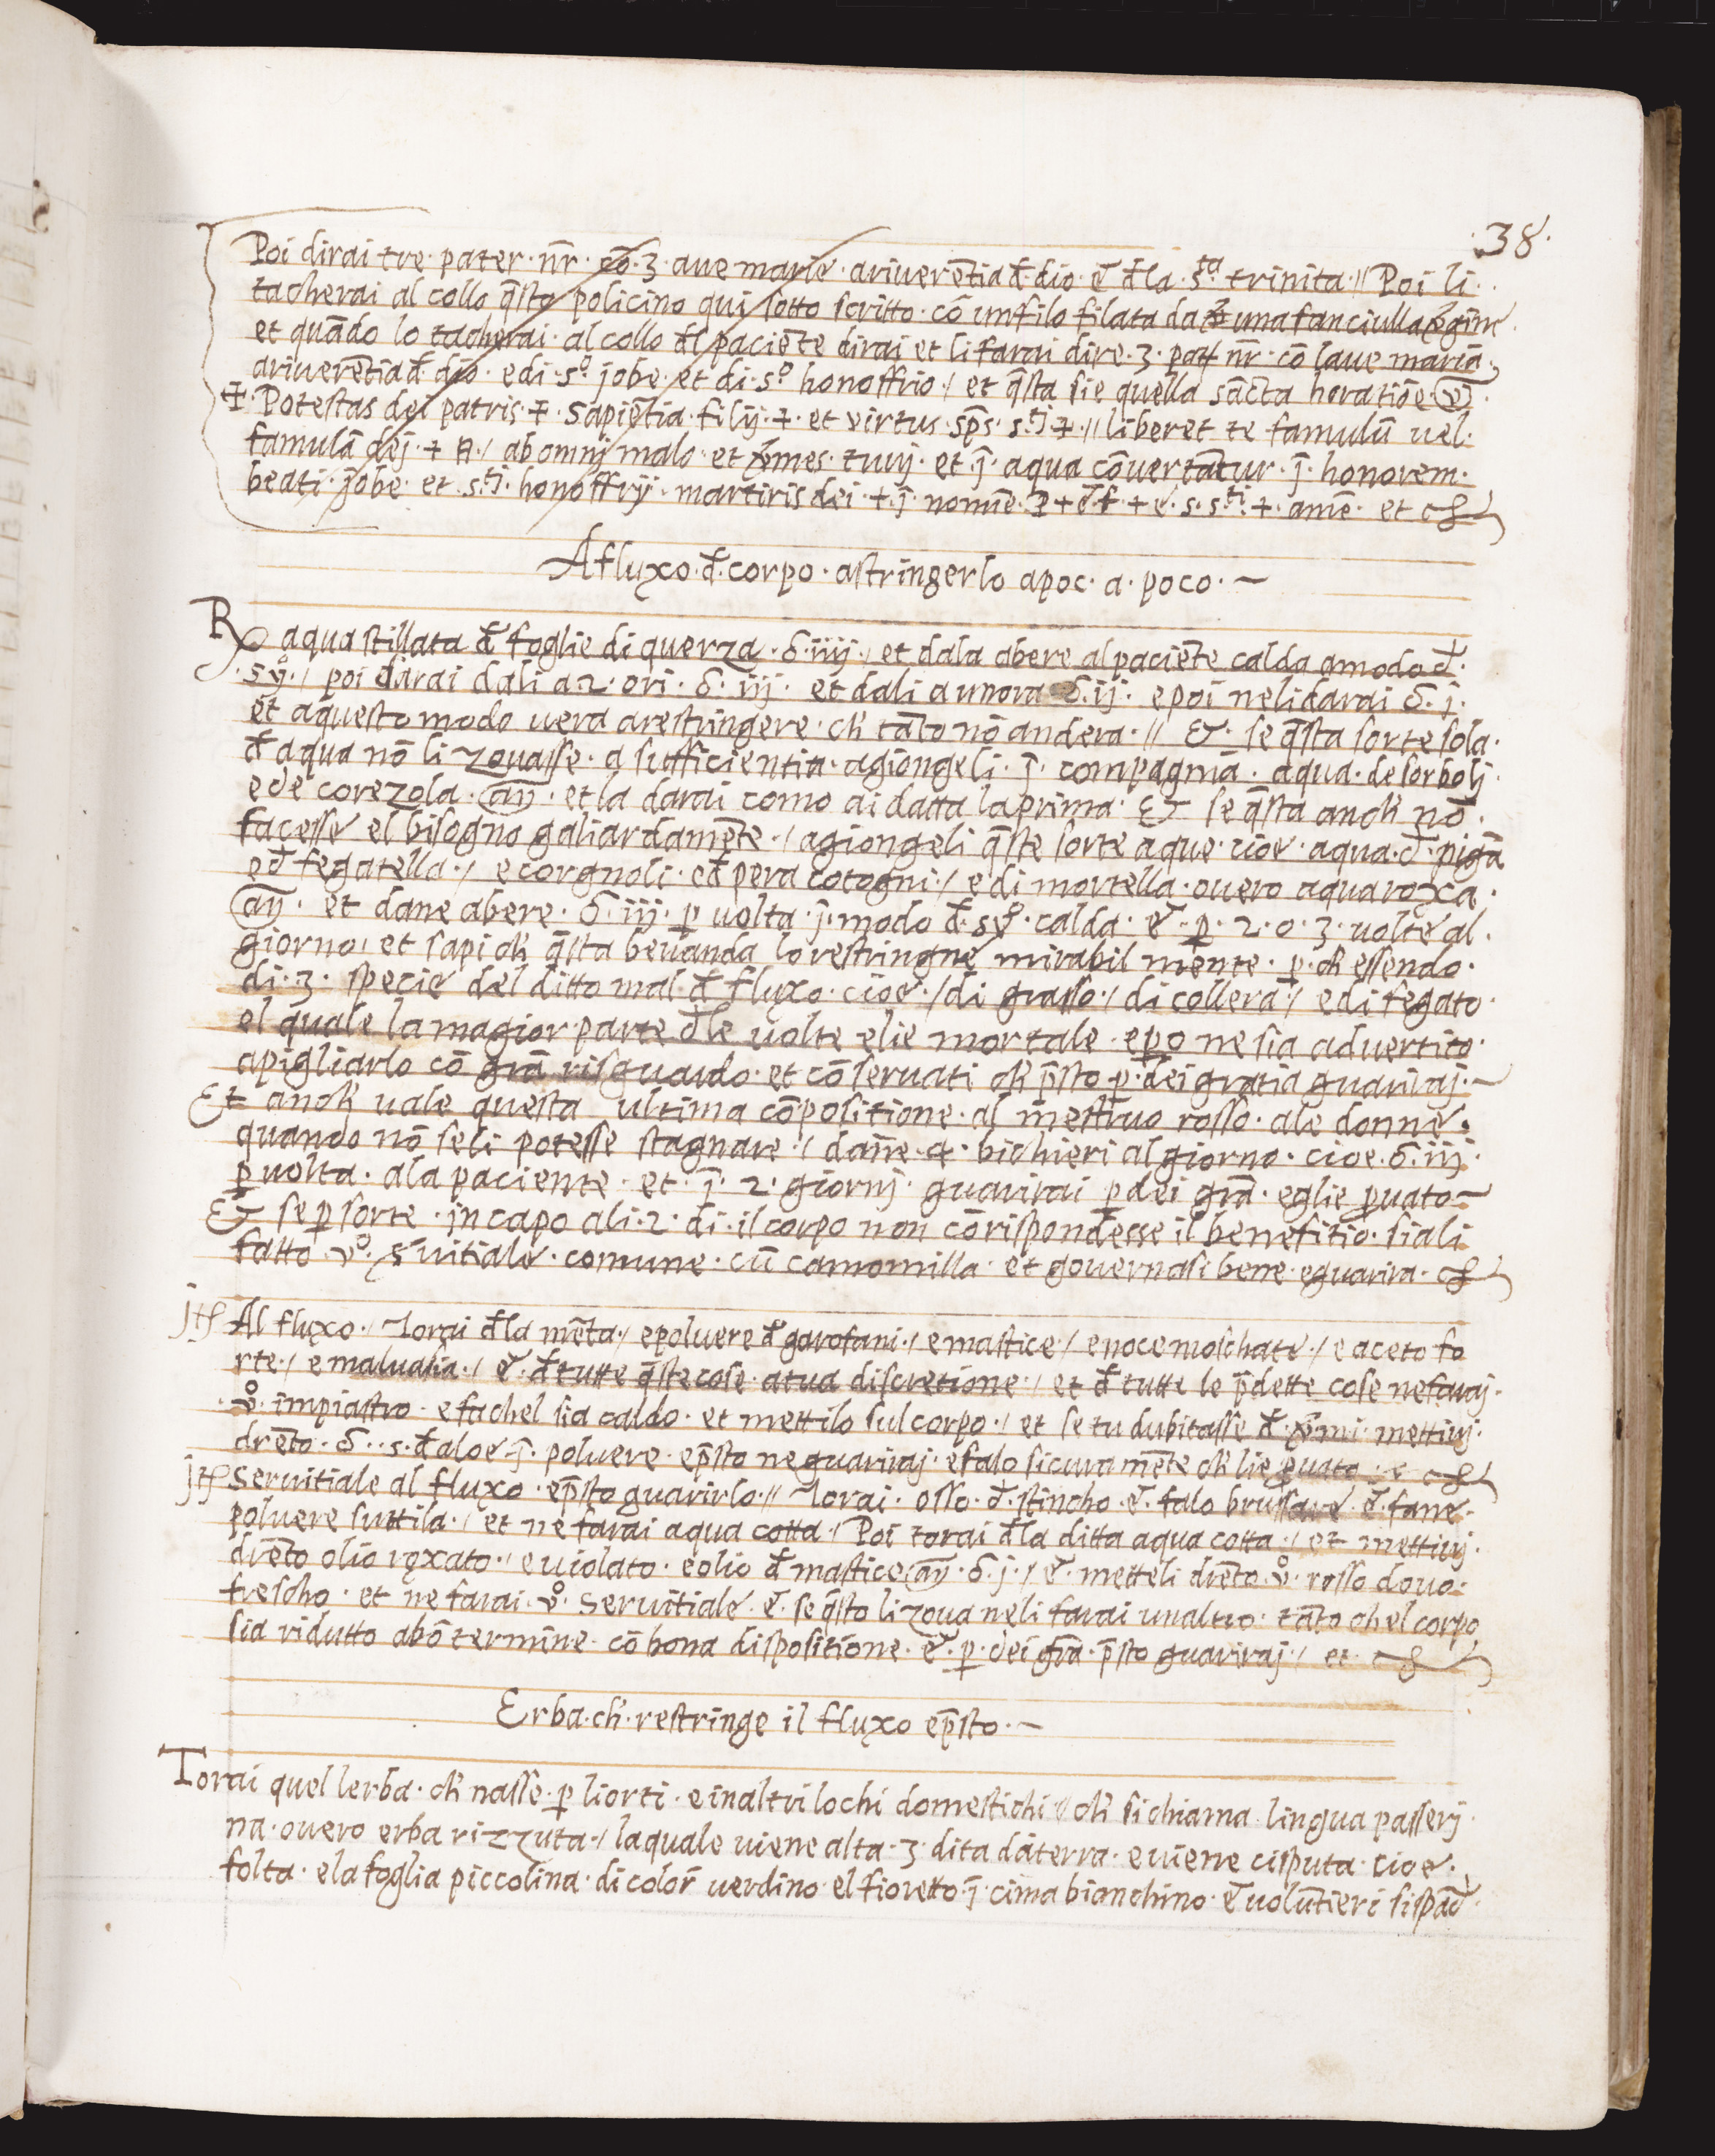 .38.
Poi dirai tre pater nr̄ cō 3 ave marie ariverētia đ dio ē đla sta trinita // Poi li
tacherai al collo q̄sto policino qui sotto scritto cō un filo filata da una fanciulla
et quādo lo tacherai al collo đl paciēte dirai et li farai dire 3 nr̄ cō lave mariā
ariverētia đ dio e di so jobe et di so honoffrio / et q̄sta sie quella sācta horatiōe
☩ Potestas dei patris ☩ sapiētia filij ☩ et virtus sp̄s sti ☩ // liberet te famulū vel
famulā dej + ab omnj malo et tuij et j̄ aqua cōvertātur j̄ honorem
beati jobe et sti honoffrij martiris dei + j̄ nomīe P + + s sti + amē et
A fluxo đ corpo astringerlo apoc a poco
Rx aqua stillata đ foglie di querza iiij / et dala abere al paciēte calda a modo đ
sy / poi darai dali a 2 ori iij et dali a unora ij e poi ne li darai j
et a questo modo vera a restringere ch tāto nō andera // Et se q̄sta sorte sola
đ aqua nō li zovasse a sufficientia agiongeli j̄ compagnīa aqua de sorbolj
e de corezola añ et la darai como ai datta la prima Et se q̄sta anch nō
facesse el bisogno galiardamēte / agiongeli q̄ste sorte aque cioe aqua đ pigā
e đ fegatella / e corgnoli e đ pera cotogni / e di mortella overo aqua roxa
añ et dane abere iij p volta j̄ modo đ syo calda ē p 2 o 3 volte al
giorno et sapi ch q̄sta bevanda lo restringne mirabil mente p ch essendo
di 3 specie del ditto mal đ fluxo cioe / di grasso / di collera / e di fegato
el quale la magior parte đle volte elie mortale epo ne sia advertito
a pigliarlo cō grā risguardo et cōservati ch p̄sto p dei gratia guariraj
Et anch vale questa ultima cōpositione al mestruo rosso ale donne
quando nō se li potesse stagnare / dane 4 bichieri al giorno cioe iij
p volta ala paciente et j̄ 2 giornj guarirai p dei grā eglie pvato
Et se p sorte in capo ali 2 di il corpo non cōrispondesse il benefitio siali
fatto vo svitiale comune cū camomilla et governasi bene e guarira
jtɧ Al fluxo / Torai đla mēta / e polvere đ garofani / e mastice / e noce moschate / e aceto fo
rte / e malvatia / ē đ tutte q̄ste cose a tua discretione / et đ tutte le p̄dette cose ne faraj
vo impiastro e fa chel sia caldo et mettilo sul corpo / et se tu dubitasse đ mettivj
drēto s đ aloe j̄ polvere e p̄sto ne guariraj e falo sicuramēte ch lie pvato
jtɧ Servitiale al fluxo e p̄sto guarirlo // Torai osso đ stincho ē falo brussare ē fane
polvere suttila / et ne farai aqua cotta / Poi torai đla ditta aqua cotta / et mettivj
drēto olio roxato / e violato e olio đ mastice añ j / ē metteli drēto vo rosso dovo
frescho et ne farai vo servitiale ē se q̄sto li zova ne li farai unaltro tāto chel corpo
sia ridutto a bō termine cō bona dispositione ē p dei grā p̄sto guariraj / et
Erba ch restringe il fluxo e p̄sto
Torai quel lerba ch nasse p li orti e in altri lochi domestichi // ch si chiama lingua passerj
na overo erba rizzuta / la quale viene alta 3 dita da terra e viene cisputa cioe
folta e la foglia piccolina di color verdino el fioretto j̄ cima bianchino ē volūtieri si spāđ